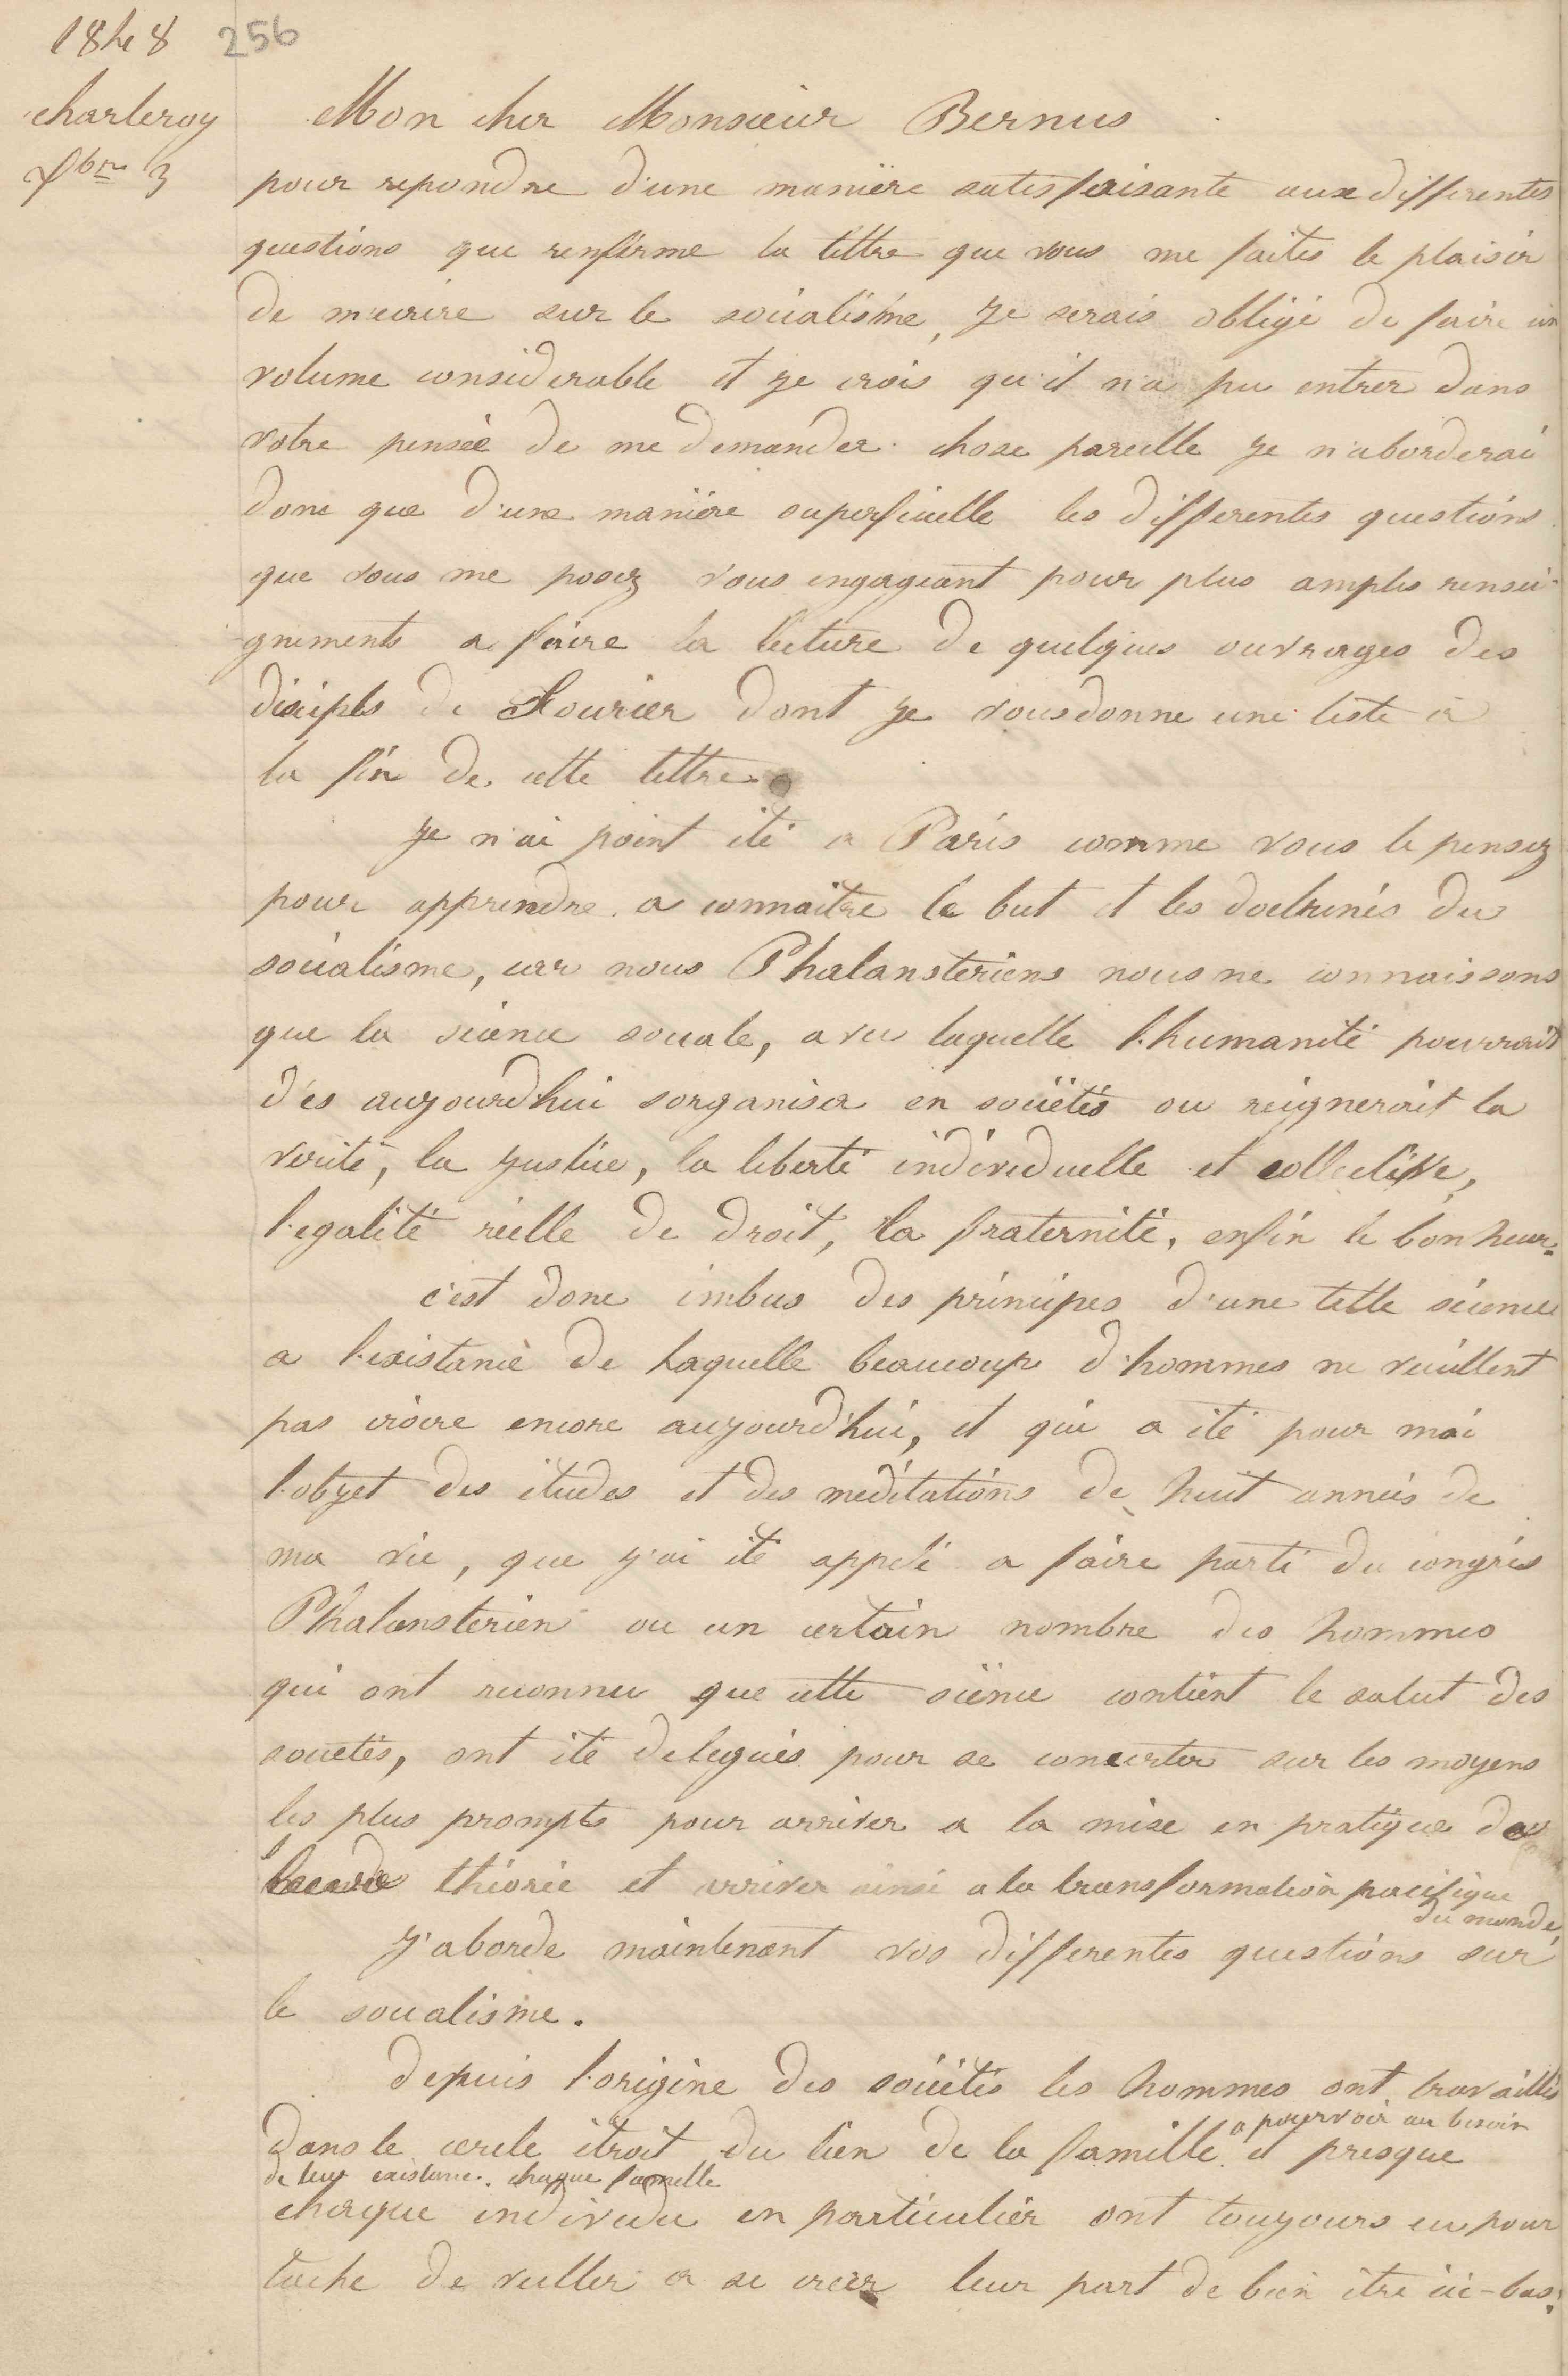 1848 256
charleroy
Mon cher Monsieur Bernus
9bre 3
pour repondre d'une manière satisfaisante aux differentes
questions que renferme la lettre que vous me faites le plaisir
de m'ecrire sur le socialisme, je serais obligé de faire un
volume considerable et je crois qu'il n'a pu entrer dans
votre pensée de me demander chose pareille je n'aborderai
donc que d'une manière superficielle les differentes questions
que vous me posez vous engageant pour plus amples rensei-
gnements a faire la lecture de quelques ouvrages des
disciples de Fourier dont je vous donne une liste à
la fin de cette lettre.
je n'ai point été a Paris comme vous le pensez
pour apprendre a connaitre le but et les doctrines du
socialisme, car nous Phalansteriens nous ne connaissons
que la science sociale, avec laquelle l'humanité pourrait
dès aujourdhui sorganiser en sociétés ou reignerait la
verité, la justice, la liberté individuelle et collective,
l'egalité réelle de droit, la fraternité, enfin le bonheur.
c'est donc imbus des principes d'une telle science
a l'existance de laquelle beaucoup d'hommes ne veuillent
pas croire encore aujourd'hui, et qui a été pour moi
l'objet des études et des meditations de huit années de
ma vie, que j'ai été appelé a faire parti du congrés
Phalansterien ou un certain nombre des hommes
qui ont reconnu que cette science contient le salut des
societés, ont été delegués pour se concerter sur les moyens
les plus prompts pour arriver a la mise en pratique de
théorie et arriver ainsi a la transformation pacifique
du monde,
j'aborde maintenant vos differentes questions sur
le socialisme.
depuis l'origine des sociétés les hommes ont travaillés
a pourvoir au besoin
dans le cercle étroit du lien de la famille et presque
de leur existance. chaque famille
chaque individu en particulier ont toujours eu pour
tache de veiller a se creer leur part de bien être ici-bas.